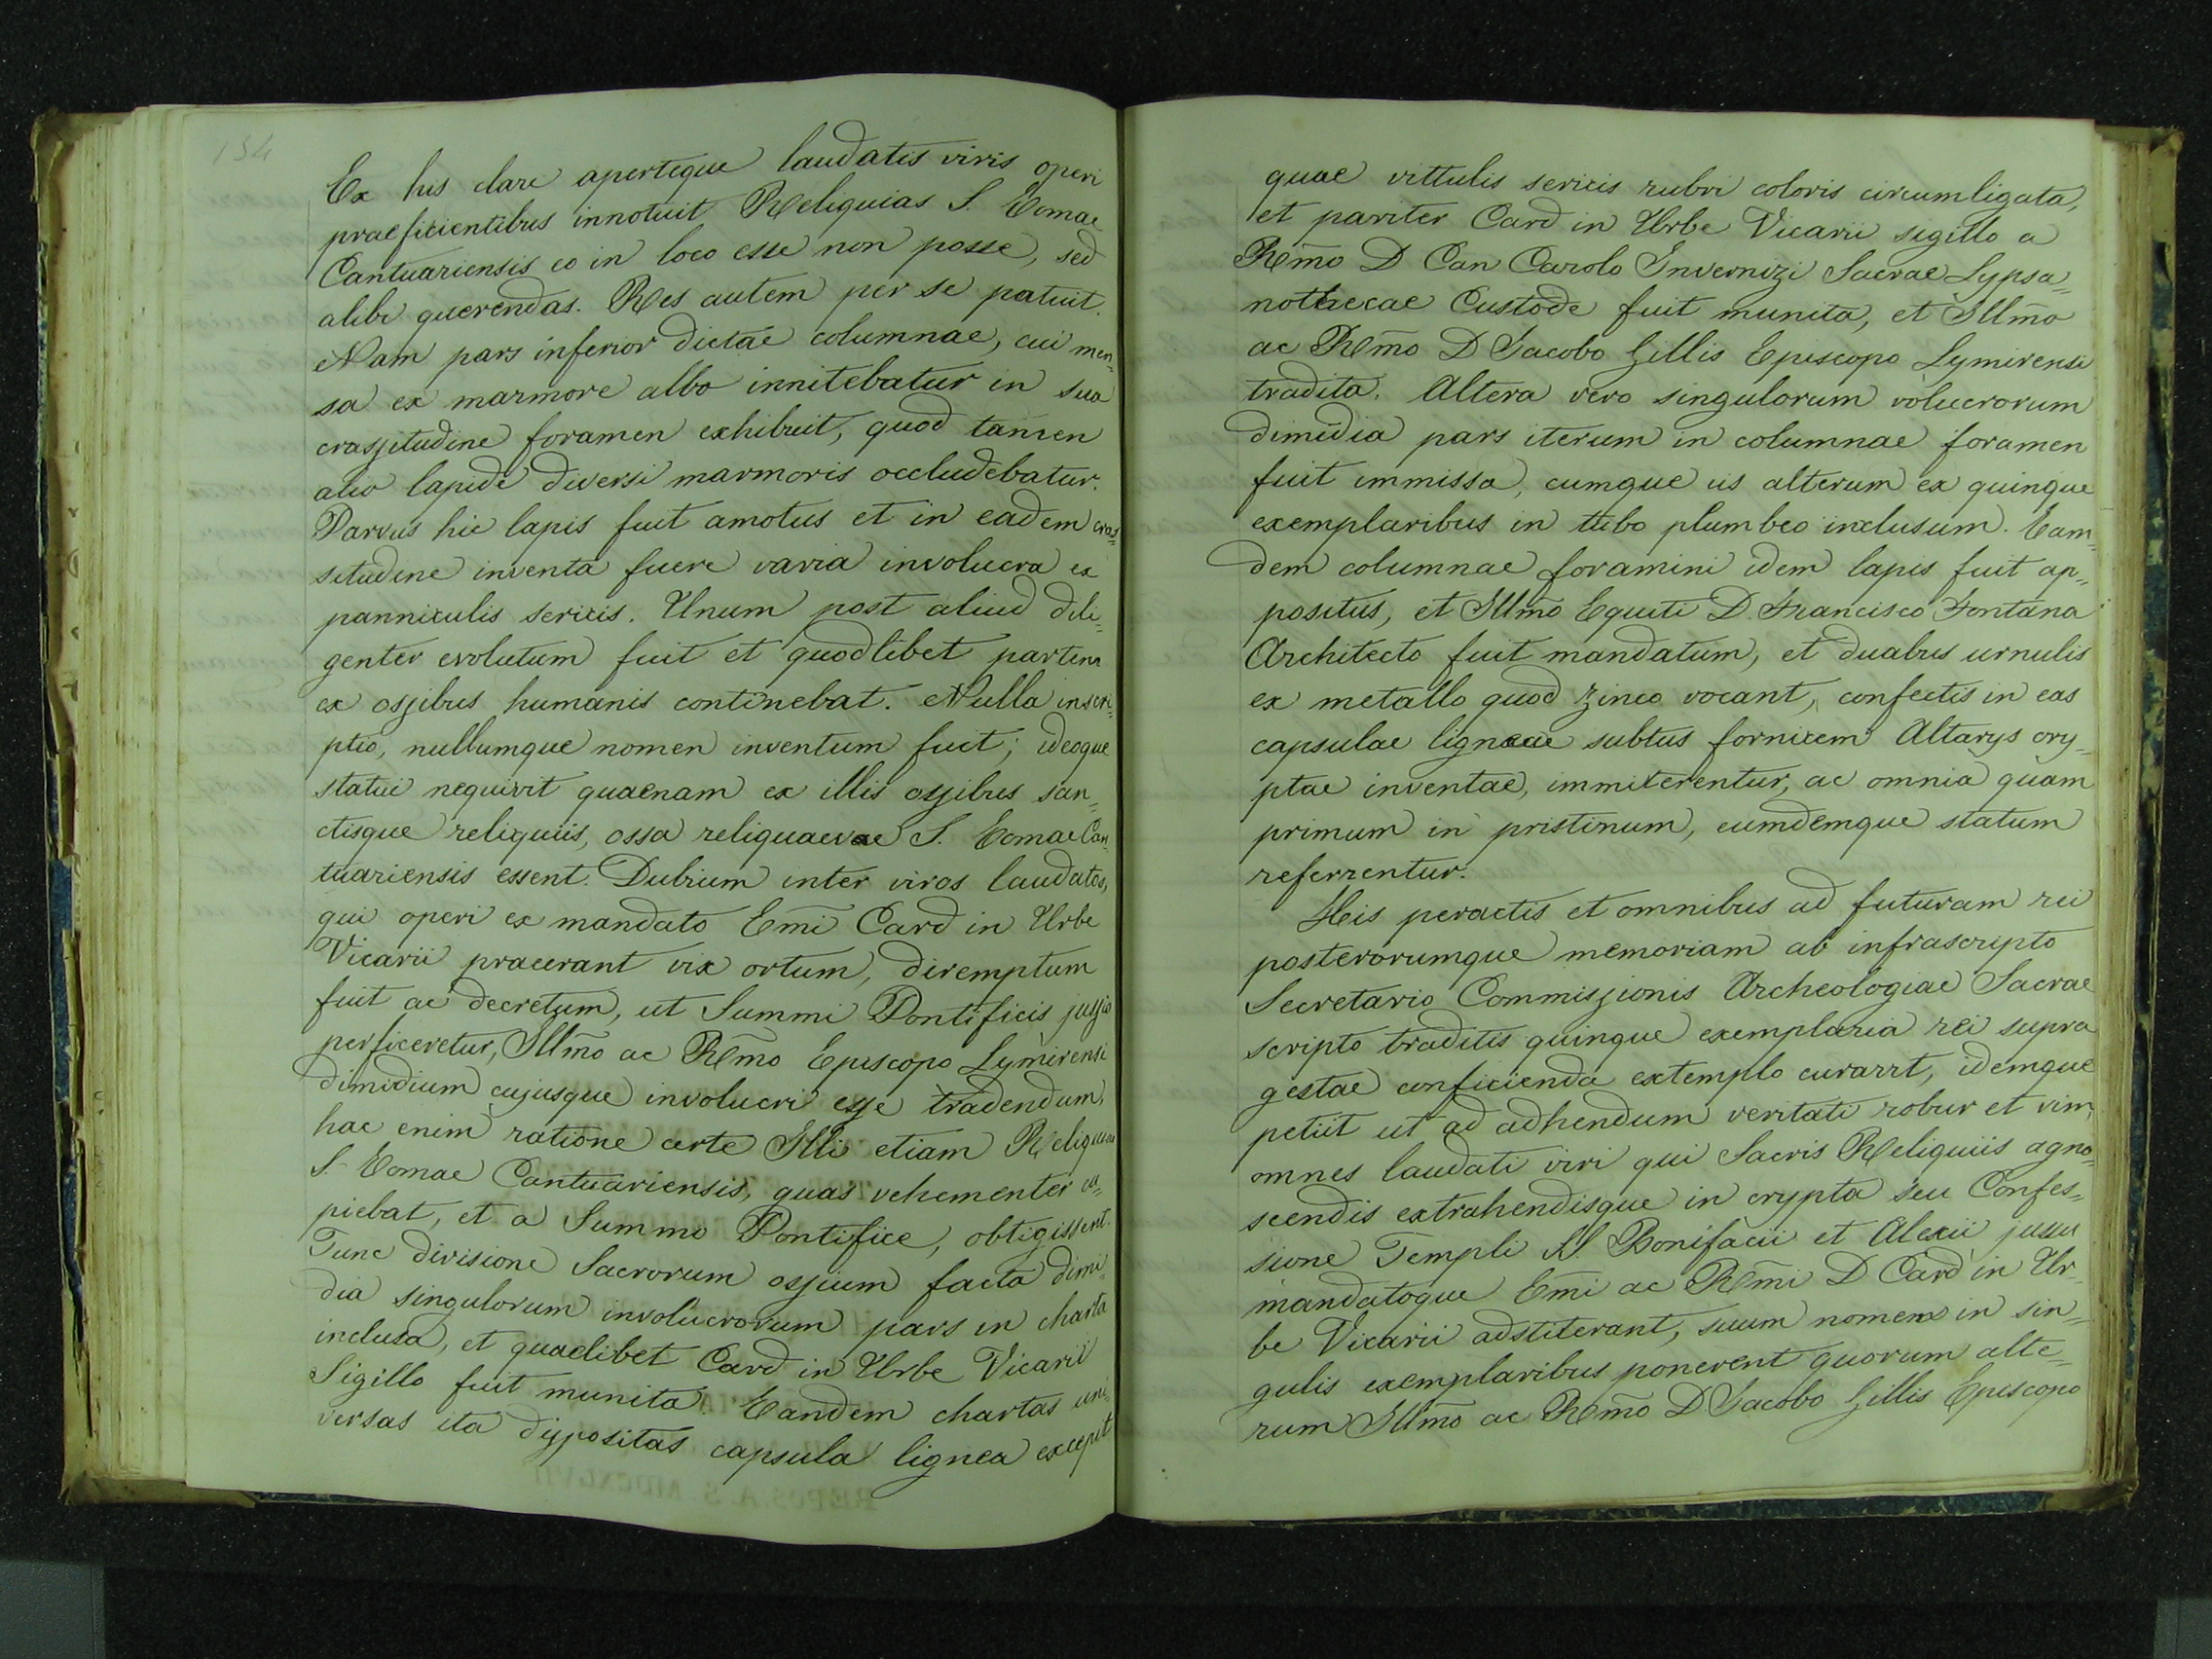 134
Ex his clare aperteque laudatis viris operi
praeficientibus innotuit Reliquias S. Tomae
Cantuariensis eo in loco esse non posse, sed
alibi querendas. Res autem per se patuit.
Nam pars inferior dictae columnae, cui men=
sa ex marmore albo innitebatur in sua
crassitudine foramen exhibuit, quod tamen
alio lapide diversi marmoris occludebatur.
Parvus hic lapis fuit amotus et in eadem cras=
situdine inventa fuere varia involucra ex
panniculis sericis. Unum post aliud dili=
genter evolutum fuit et quodlibet partem
ex ossibus humanis continebat. Nulla inscri=
ptio, nullumque nomen inventum fuit; ideoque
statui nequivit quaenam ex illis ossibus san=
ctisque reliquiis, ossa reliquaevae S. Tomae Can=
tuariensis essent. Dubium inter viros laudatos,
qui operi ex mandato Emi Card in Urbe
Vicarii praeerant vix ortum, diremptum
fuit ac decretum, ut Summi Pontificis jussio
perficeretur, Illmo ac Rmo Episcopo Lymirensi
dimidium cujusque involucri esse tradendum,
hac enim ratione certe Illi etiam Reliquiae
S. Tomae Cantuariensis, quas vehementer cu=
piebat, et a Summo Pontifice, obtigissent.
Tunc divisione Sacrorum ossium facta dimi=
dia singulorum involucrorum pars in charta
inclusa, et quaelibet Card in Urbe Vicarii
Sigillo fuit munita. Eandem chartas uni=
versas ita dispositas capsula lignea excepit
quae vittulis sericis rubri coloris circumligata,
et pariter Card in Urbe Vicarii sigillo a
Rmo D Can Carolo Invernizi Sacrae Lypsa=
nothecae Custode fuit munita, et Illmo
ac Rmo D Jacobo Gillis Episcopo Lymirensi
tradita. Altera vero singulorum volucrorum
dimidia pars iterum in columnae foramen
fuit immissa, cumque iis alterum ex quinque
exemplaribus in tubo plumbeo inclusum. Eam=
dem columnae foramini idem lapis fuit ap=
positus, et Illmo Equiti D. Francisco Fontana
Architecto fuit mandatum, et duabus urnulis
ex metallo quod zinco vocant, confectis in eas
capsulae ligneae subtus fornicem Altarys cry=
ptae inventae, immiterentur, ac omnia quam
primum in pristinum, eumdemque statum
referrentur.
His peractis et omnibus ad futuram rei
posterorumque memoriam ab infrascripto
Secretario Commissionis Archeologiae Sacrae
scripto traditis quinque exemplaria rei supra
gestae conficienda extemplo curavit, idemque
petiit ut ad adhendum veritati robur et vim,
omnes laudati viri qui Sacris Reliquiis agno=
scendis extrahendisque in crypta seu Confes=
sione Templi SS Bonifacii et Alexii jussu
mandatoque Emi ac Rmi D Card in Ur=
be Vicarii adstiterant, suum nomen in sin=
gulis exemplaribus ponerent quorum alte=
rum Illmo ac Rmo D Jacobo Gillis Episcopo